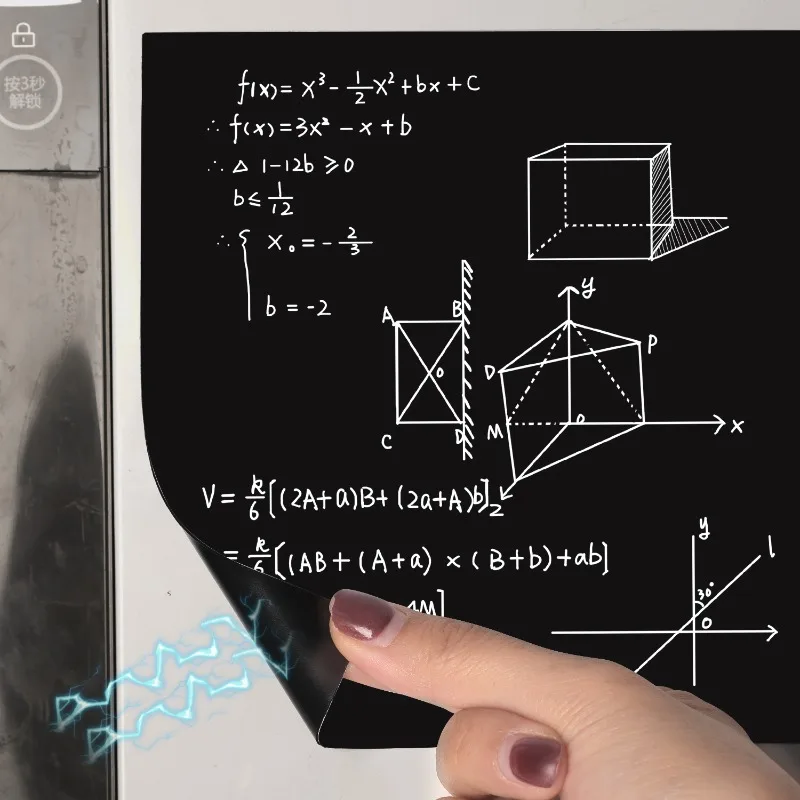 按3秒
解锁
f(x)= x³ - 1/2 x² + bx + C
∴ f(x) = 3x² - x + b
∴ △ 1-12b ≥ 0
b ≤ 1/12
∴ { x₀ = - 2/3
b = -2
A B
O
C D
y
P
D
M O x
z
V = k/6 [(2A+a)B+(2a+A)b]
= k/6 [(AB+(A+a) × (B+b)+ab]
4M]
y
l
30°
O